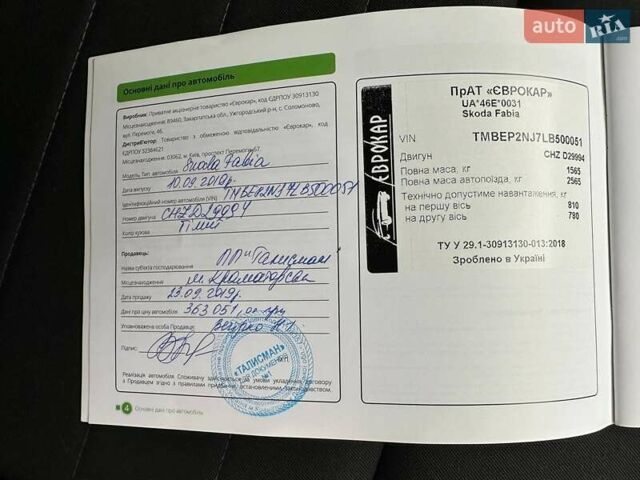 auto RIA.com
Основні дані про автомобіль
Виробник: Приватне акціонерне товариство «Єврокар», код ЄДРПОУ 30913130
Місцезнаходження: 89460, Закарпатська обл., Ужгородський р-н, с. Соломоново,
вул. Перемоги, 46.
Дистриб'ютор: Товариство з обмеженою відповідальністю «Єврокар», код
ЄДРПОУ 32384621
Місцезнаходження: 03062, м. Київ, проспект Перемоги 67.
Модель, Тип автомобіля Skoda Fabia
Дата випуску 10.09.2019р.
Ідентифікаційний номер автомобіля (VIN) TMBEP2NJ7LB500051
Номер двигуна CHZ D29994
Колір кузова Білий
Продавець:
Назва суб'єкта господарювання ПП "Талисман"
Місцезнаходження м. Краматорськ
Дата продажу 23.09.2019р.
Дані про ціну автомобіля 363 051,
Уповноважена особа Продавця
Підпис:
«ТАЛИСМАН»
ДЛЯ ДОКУМЕНТІВ
№1
Реалізація автомобіля Споживачу здійснюється на умови укладеного договору
з Продавцем згідно з правилами придбання, встановленими законодавством.
4 Основні дані про автомобіль
ЄВРОКАР
ПрАТ «ЄВРОКАР»
UA*46E*0031
Skoda Fabia
VIN TMBEP2NJ7LB500051
Двигун CHZ D29994
Повна маса, кг 1565
Повна маса автопоїзда, кг 2565
Технічно допустиме навантаження, кг
на першу вісь 810
на другу вісь 780
ТУ У 29.1-30913130-013:2018
Зроблено в Україні